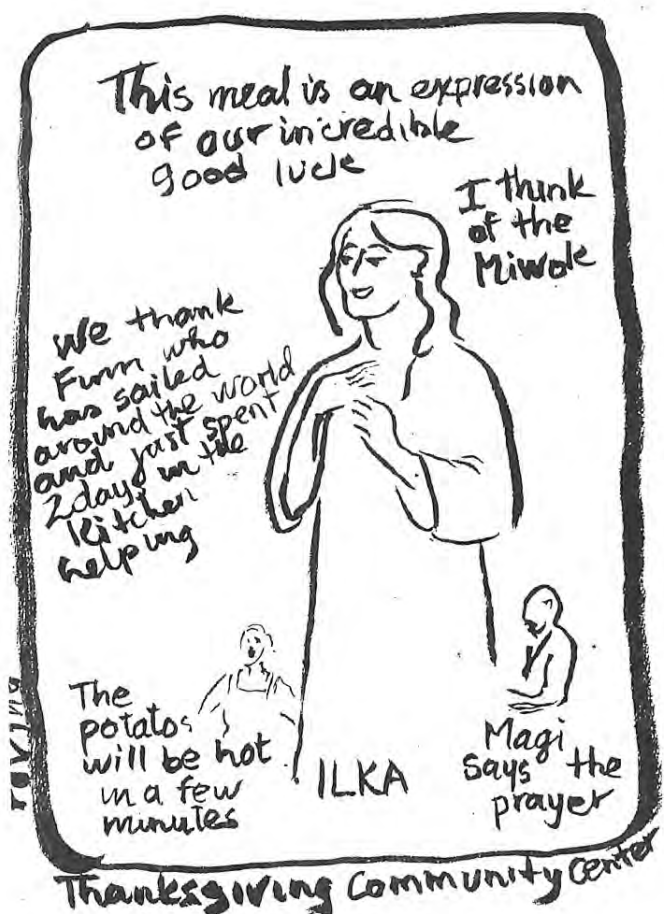 This meal is an expression
of our incredible
good luck
I think
of the
Miwok
We thank
who
has sailed
around the world
and just spent
2 days in the
kitchen
helping
The
potatos
will be hot
in a few
minutes
ILKA
Magi
says the
prayer
Thanksgiving Community Center